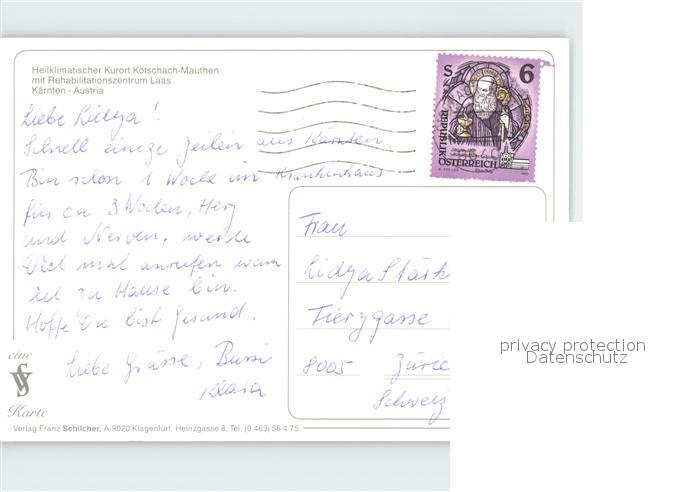 Heilklimatischer Kurort Kötschach-Mauthen
mit Rehabilitationszentrum Laas
Kärnten - Austria
Liebe Lidya!
Schnell einige Zeilen aus Kärnten.
Bin schon 1 Woche im Krankenhaus
für ca 3 Wochen, Herz
und Nerven, werde
Dich mal anrufen wann
ich zu Hause bin.
Hoffe Du bist gesund.
Liebe Grüsse, Bussi
Klara
S 6
REPUBLIK
ÖSTERREICH
Frau
Lidya
Fierzgasse
8005 Züric
Schweiz
privacy protection
Datenschutz
eine
Karte
Verlag Franz Schilcher, A-9020 Klagenfurt, Heinzgasse 8, Tel. (0 463) 56 4 75